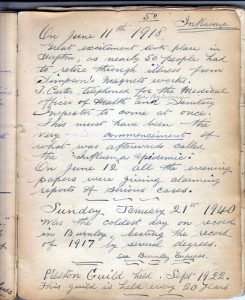 50
Influenza
On June 11th 1918
Great excitement took place in
Clapton, as nearly 50 people had
to retire through illness from
Simpson's magneto works.
J. Carter telephoned for the Medical
Officer of Health and Sanitary
Inspector to come at once.
This must have been the
very commencement of
what was afterwards called
the Influenza Epidemic.
On June 12 all the evening
papers were giving alarming
reports of serious cases.
Sunday, January 21st 1940
Was the coldest day on record
in Burnley, beating the record
of 1917 by several degrees.
See Burnley Express.
Preston Guild held. Sept 1922.
This guild is held every 20 years